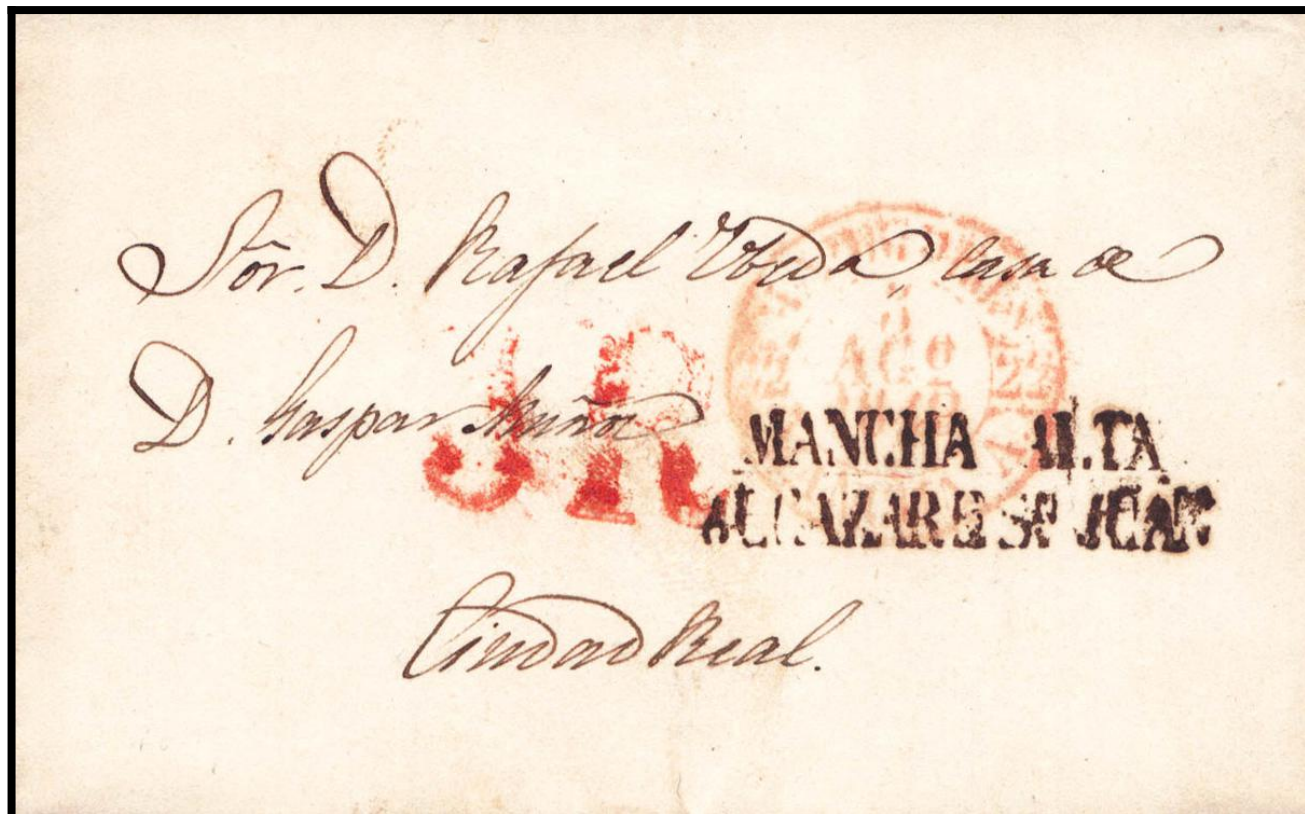 Sôr. D. Rafael Ubeda, casa de
D. Gaspar Muñoz
R
AGO
MANCHA ALTA
ALCAZAR DE Sn JUAN
Ciudad Real.